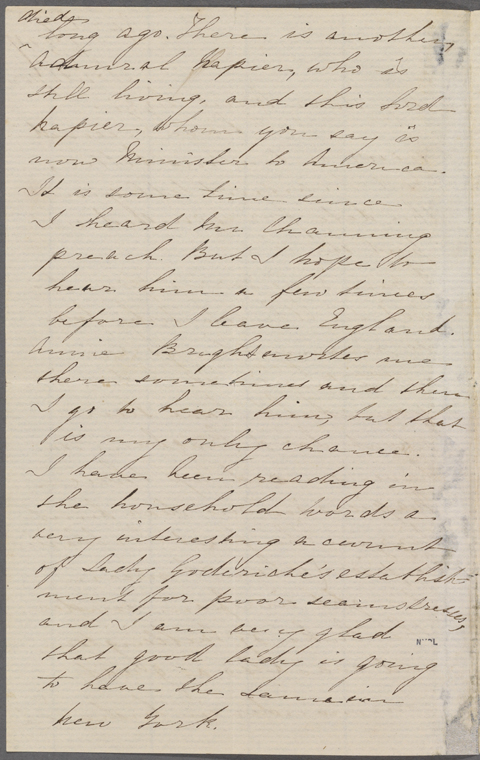 died
long ago. There is another
Admiral Napier, who is
still living, and this Lord
Napier, whom you say is
now Minister to America.
It is some time since
I heard Mr Channing
preach. But I hope to
hear him a few times
before I leave England.
Annie Bright invites me
there sometimes and then
I go to hear him, but that
is my only chance.
I have been reading in
the household words a
very interesting account
of Lady Goderich's establish-
ment for poor seamstresses,
and I am very glad
that good lady is going
to have the same in
New York.
NYPL